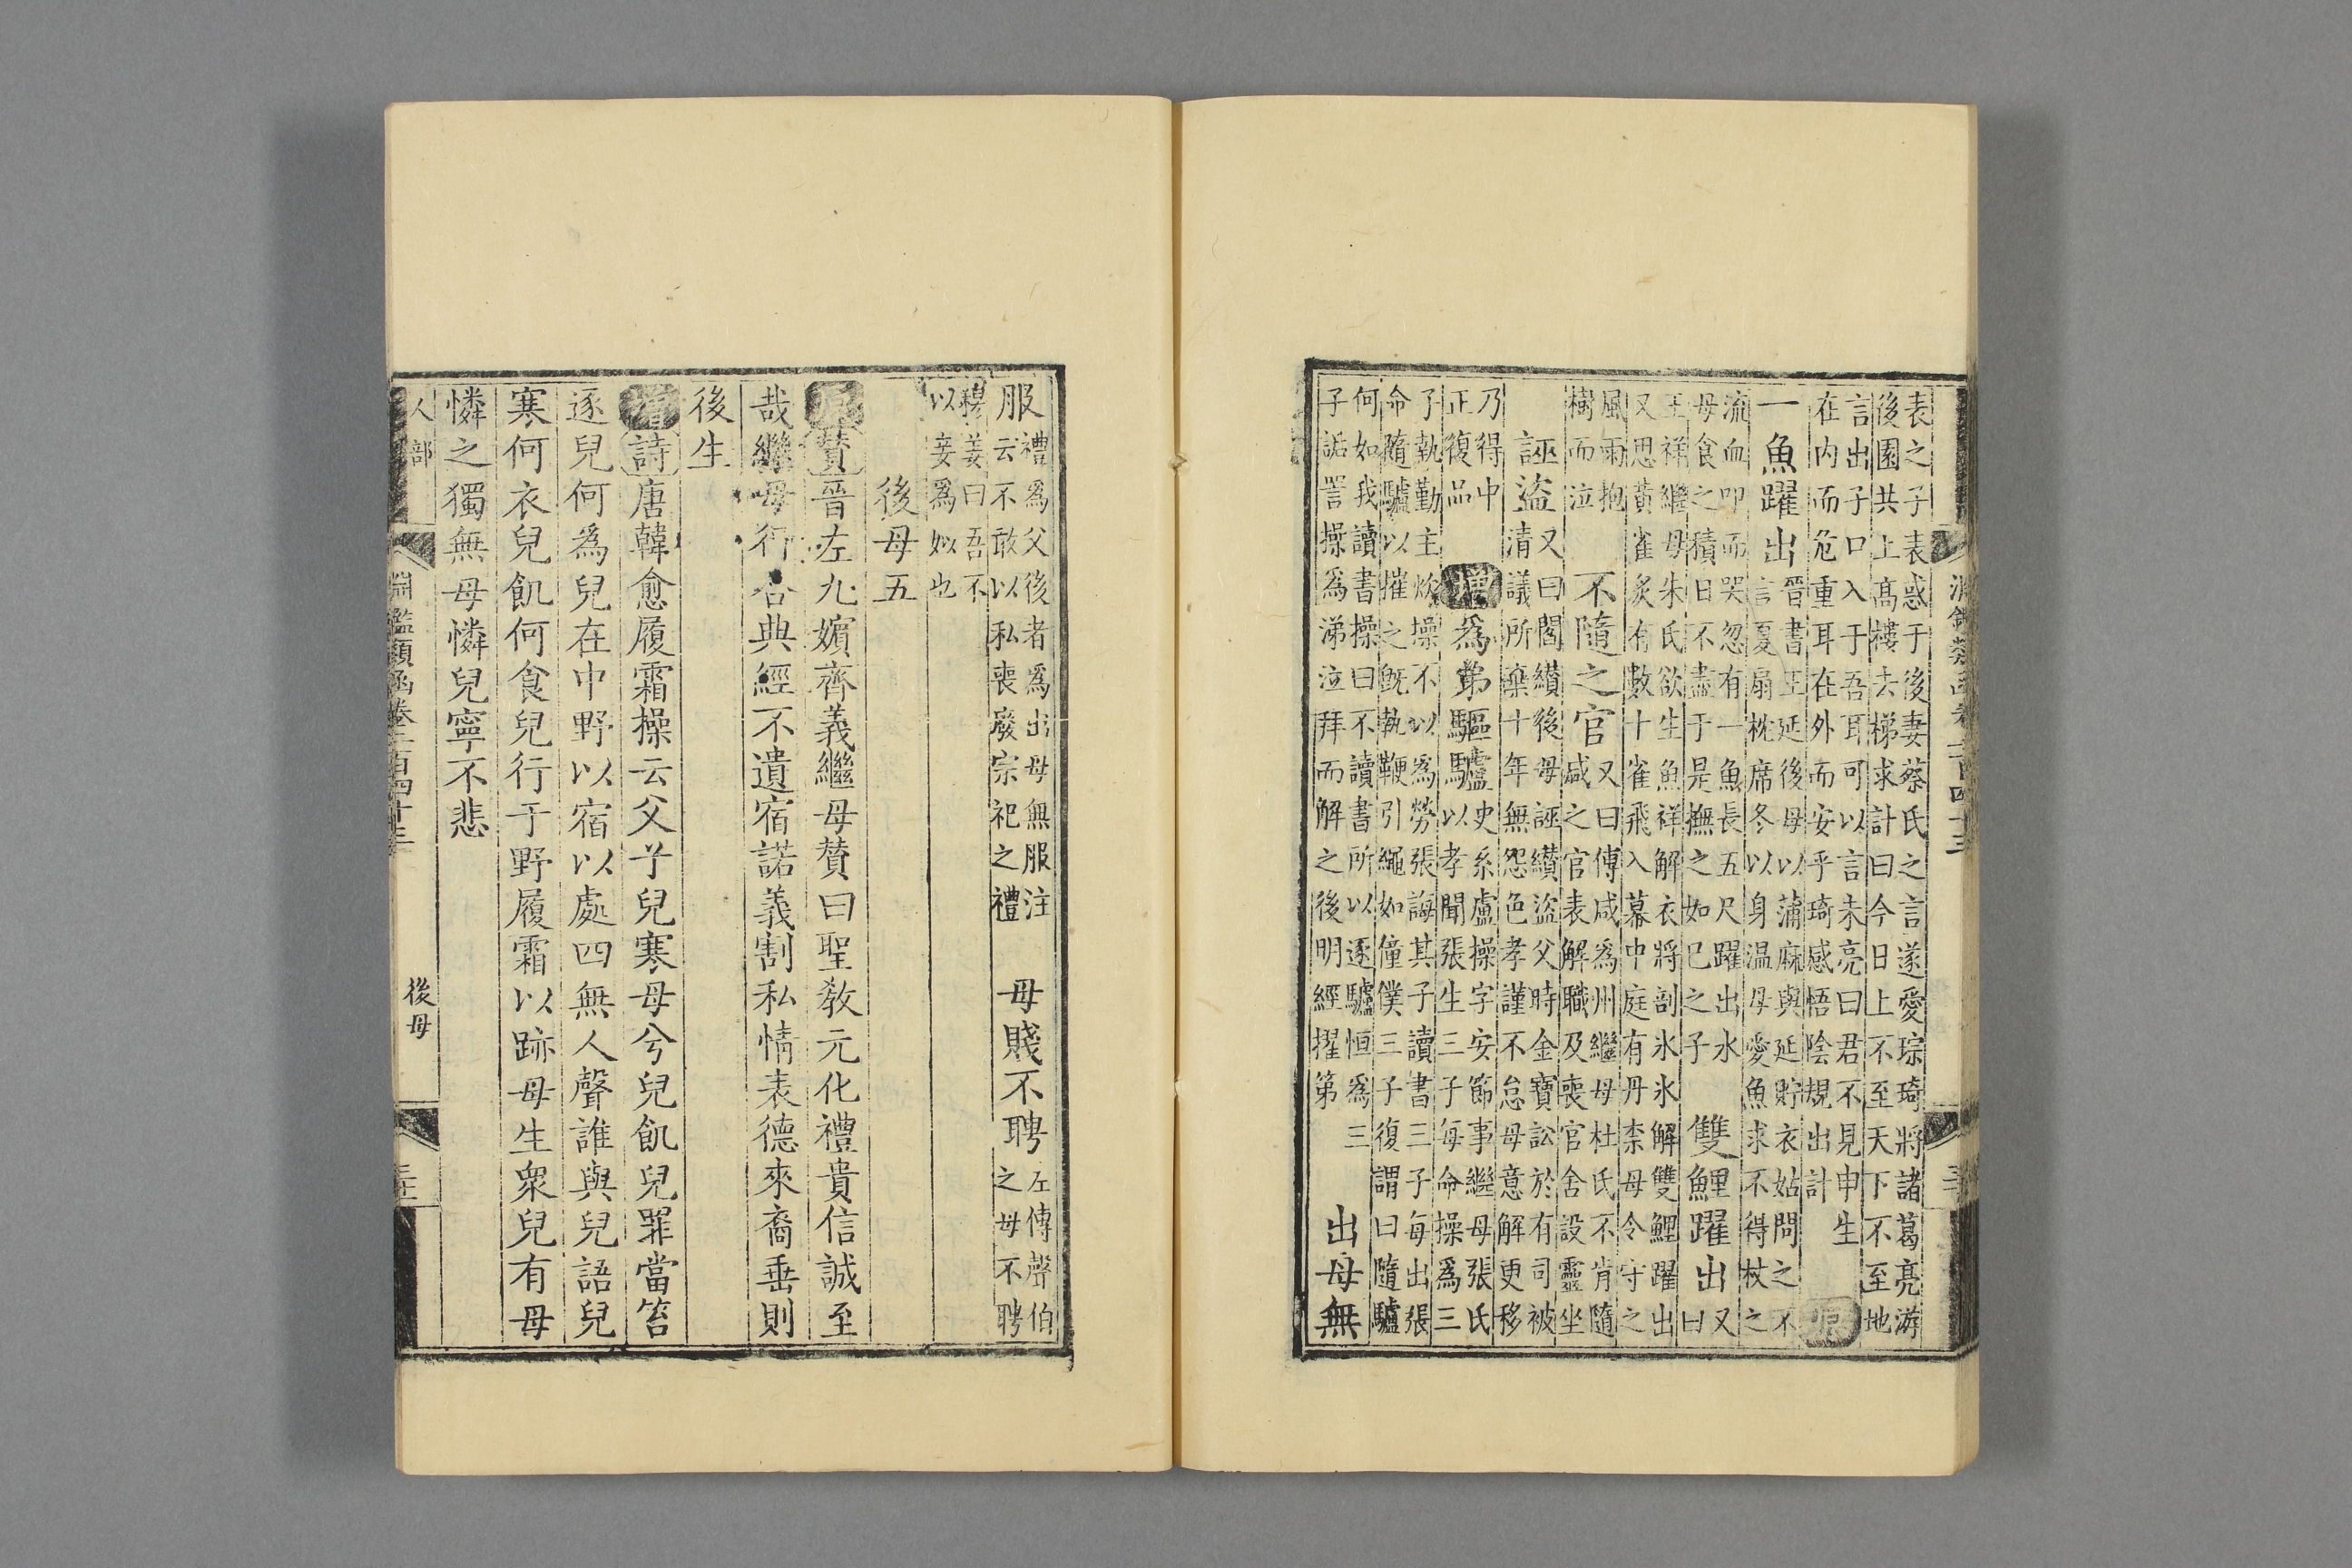 表之子表惑于後妻蔡氏之言遂愛琮琦將諸葛亮游
後園共上髙樓去梯求計曰今日上不至天下不至地
言出子口入于吾耳可以言未亮曰君不見申生
在内而危重耳在外而安乎琦感悟陰規出計
原
一魚躍出
晉書王延後母以蒲麻與延貯衣姑問之不
言夏扇枕席冬以身温母愛魚求不得杖之
流血叩而哭忽有一魚長五尺躍出水
母食之積日不盡于是撫之如已之子
雙鯉躍出
又
曰
王祥繼母朱氏欲生魚祥解衣將剖氷氷解雙鯉躍出
又思黃雀炙有數十雀飛入幕中庭有丹柰母令守之
風雨抱
樹而泣
不隨之官
又曰傅咸為州繼母杜氏不肯隨
咸之官表解職及喪官舍設靈坐
誣盜
又曰閻纉後母誣纉盜父時金寶訟於有司被
清議所棄十年無怨色孝謹不怠母意解更移
乃得中
正復品
增
為弟驅驢
史系盧操字安節事繼母張氏
以孝聞張生三子每命操爲三
子執勤主炊操不以為勞張誨其子讀書三子每出張
命隨驢以摧之旣執鞭引繩如僮僕三子復謂曰隨驢
何如我讀書操曰不讀書所以逐驢恒爲三
子詬詈操爲涕泣拜而解之後明經擢第
出母無
淵鑑類函卷二百四十三
服
禮爲父後者爲出母無服注
云不敢以私喪廢宗祀之禮
母賤不聘
左傳聲伯
之母不聘
穆姜曰吾不
以妾爲姒也
後母五
原
贊
晉左九嬪齊義繼母贊曰聖敎元化禮貴信誠至
哉繼母行合典經不遺宿諾義割私情表德來裔垂則
後生
增
詩
唐韓愈履霜操云父兮兒寒母兮兒飢兒罪當笞
逐兒何爲兒在中野以宿以處四無人聲誰與兒語兒
寒何衣兒飢何食兒行于野履霜以跡母生衆兒有母
憐之獨無母憐兒寧不悲
人部
淵鑑類函卷二百四十三
後母